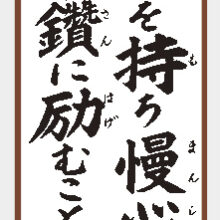 を持ち慢心
も まんし
鑽に励むこと
さん はげ